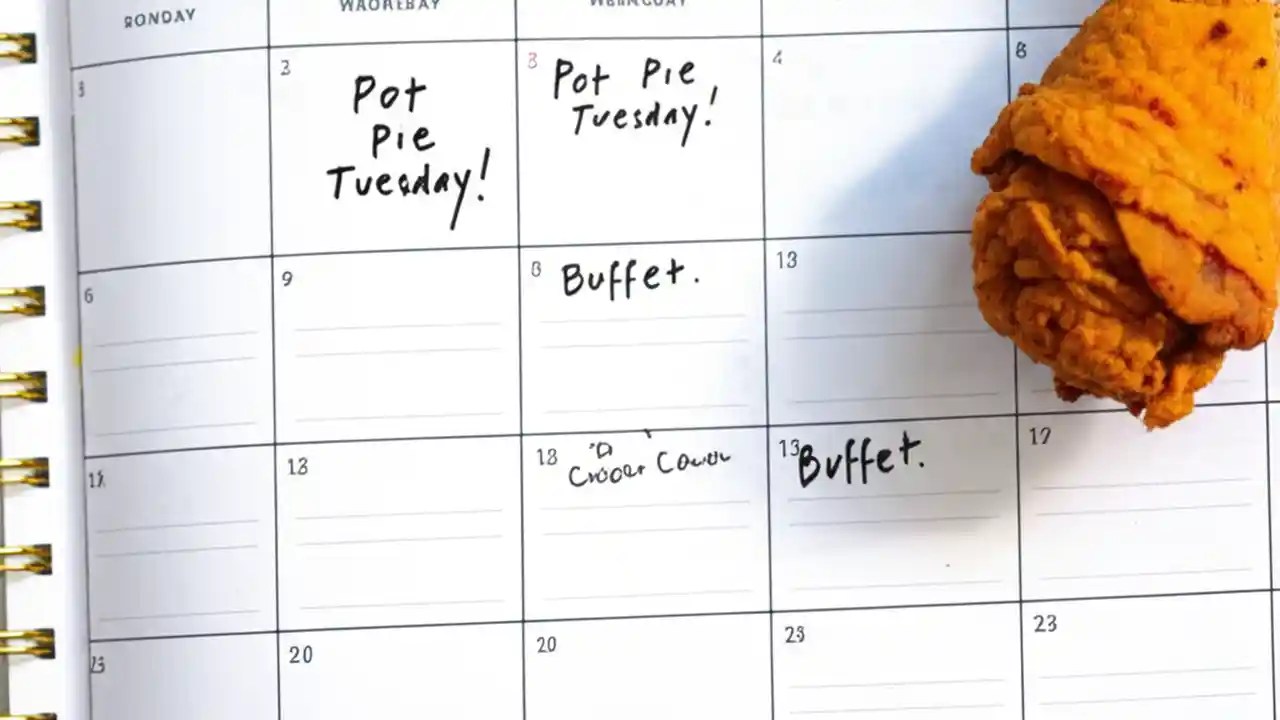 RONDAY WAORELAY WERNCUDAY
3 3 3 4 8
Pot
Pie
Tuesday!
Pot Pie
Tuesday!
6 9 8 13
Buffet.
13 13 13 17
Buffet.
23 20 20 23 23